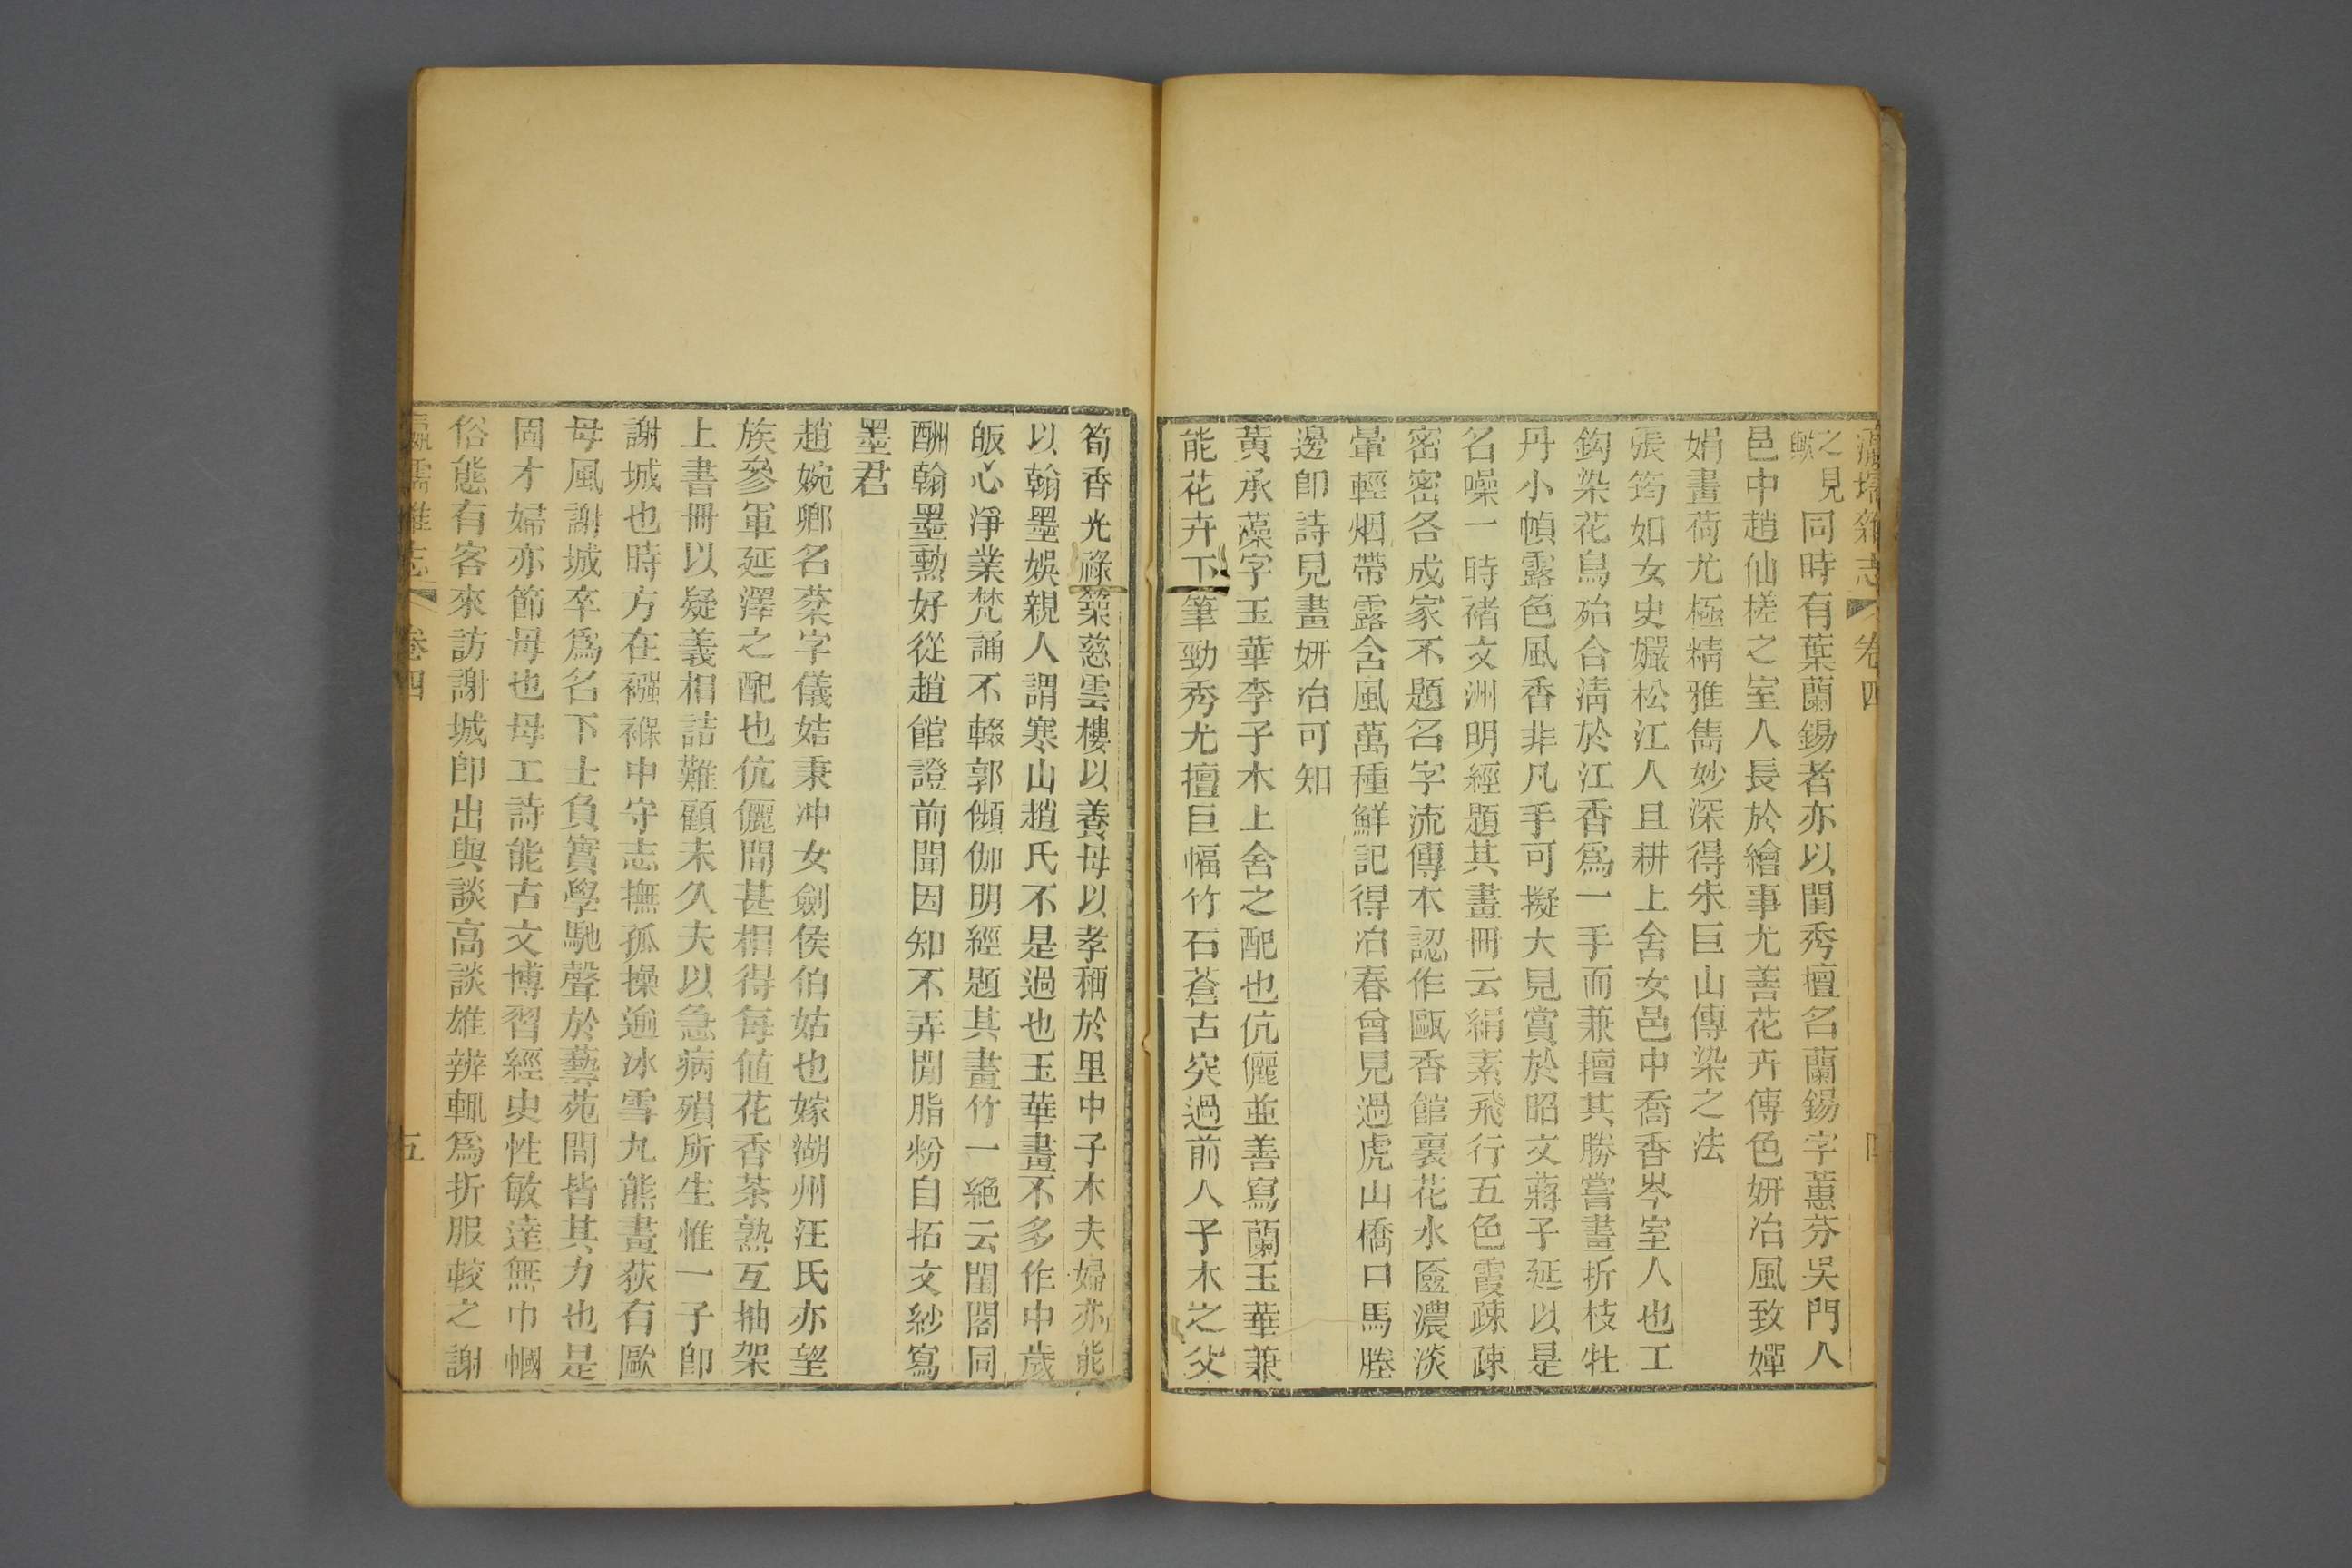 瀛壖雜志 卷四 四
之見歟同時有葉蘭錫者亦以閨秀擅名蘭錫字蕙芬吳門人
邑中趙仙槎之室人長於繪事尤善花卉傳色妍冶風致嬋
娟畫荷尤極精雅雋妙深得朱巨山傳染之法
張筠如女史孍松江人且耕上舍女邑中喬香岑室人也工
鈎染花鳥殆合淸於江香爲一手而兼擅其勝嘗畫折枝牡
丹小幀露色風香非凡手可擬大見賞於昭文蔣子延以是
名噪一時褚文洲明經題其畫冊云絹素飛行五色霞疎疎
密密各成家不題名字流傳本認作甌香館裏花水匳濃淡
暈輕烟帶露含風萬種鮮記得冶春曾見過虎山橋口馬塍
邊卽詩見畫妍冶可知
黃承藻字玉華李子木上舍之配也伉儷並善寫蘭玉華兼
能花卉下筆勁秀尤擅巨幅竹石蒼古突過前人子木之父
筍香光祿築慈雲樓以養母以孝稱於里中子木夫婦亦能
以翰墨娛親人謂寒山趙氏不是過也玉華畫不多作中歲
皈心淨業梵誦不輟郭頻伽明經題其畫竹一絕云閨閣同
酬翰墨勳好從趙館證前聞因知不弄閒脂粉自拓文紗寫
墨君
趙婉卿名棻字儀姞秉冲女劍侯伯姑也嫁湖州汪氏亦望
族參軍延澤之配也伉儷間甚相得每値花香茶熟互抽架
上書冊以疑義相詰難顧未久夫以急病殞所生惟一子卽
謝城也時方在襁褓中守志撫孤操逾冰雪九熊畫荻有歐
母風謝城卒爲名下士負實學馳聲於藝苑間皆其力也是
固才婦亦節母也母工詩能古文博習經史性敏達無巾幗
俗態有客來訪謝城卽出與談高談雄辨輒爲折服較之謝
瀛壖雜志 卷四 五